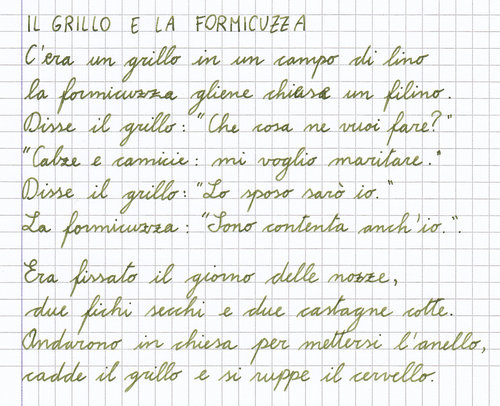 IL GRILLO E LA FORMICUZZA
C'era un grillo in un campo di lino
la formicuzza gliene chiese un filino.
Disse il grillo: "Che cosa ne vuoi fare?"
"Calze e camicie: mi voglio maritare."
Disse il grillo: "Lo sposo sarò io."
La formicuzza: "Sono contenta anch'io.".
Era fissato il giorno delle nozze,
due fichi secchi e due castagne cotte.
Andarono in chiesa per mettersi l'anello,
cadde il grillo e si ruppe il cervello.